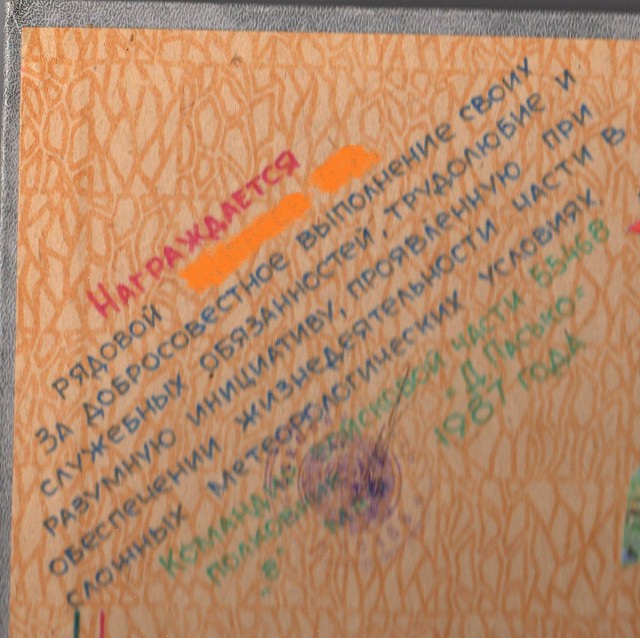 НАГРАЖДАЕТСЯ
РЯДОВОЙ
ЗА ДОБРОСОВЕСТНОЕ ВЫПОЛНЕНИЕ СВОИХ
СЛУЖЕБНЫХ ОБЯЗАННОСТЕЙ, ТРУДОЛЮБИЕ И
РАЗУМНУЮ ИНИЦИАТИВУ, ПРОЯВЛЕННУЮ ПРИ
ОБЕСПЕЧЕНИИ ЖИЗНЕДЕЯТЕЛЬНОСТИ ЧАСТИ В
СЛОЖНЫХ МЕТЕОРОЛОГИЧЕСКИХ УСЛОВИЯХ.
КОМАНДИР ВОЙСКОВОЙ ЧАСТИ 55468
ПОЛКОВНИК Д. ПАСЬКО
"8" МАЯ 1987 ГОДА